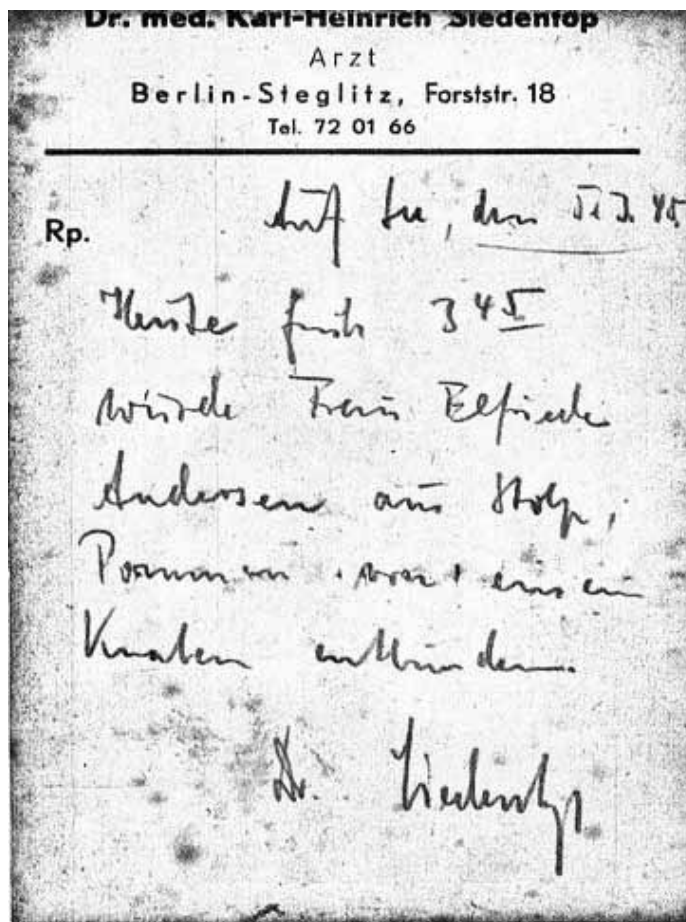 Dr. med. Karl-Heinrich Siedentop
Arzt
Berlin-Steglitz, Forststr. 18
Tel. 72 01 66
Rp.
Auf See, den 5. 3. 45
Heute früh 3 45
wurde Frau Elfriede
Andersen aus Stolp,
Pommern von einem
Knaben entbunden.
Dr. Siedentop